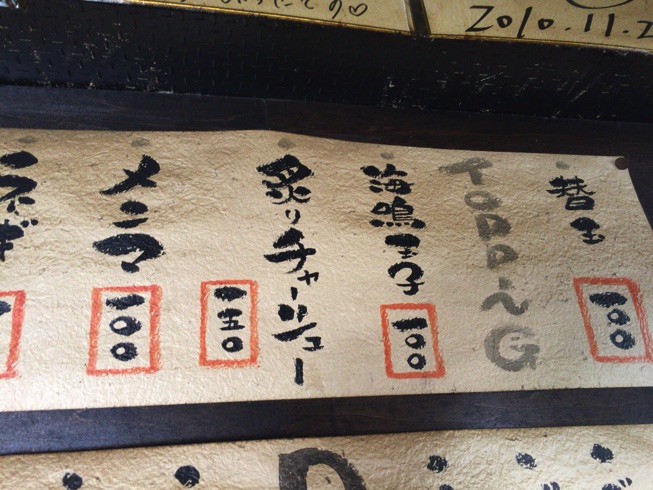 2010.11.2
替玉
一〇〇
TOPPING
海鳴玉子
一〇〇
炙りチャーシュー
一五〇
メンマ
一〇〇